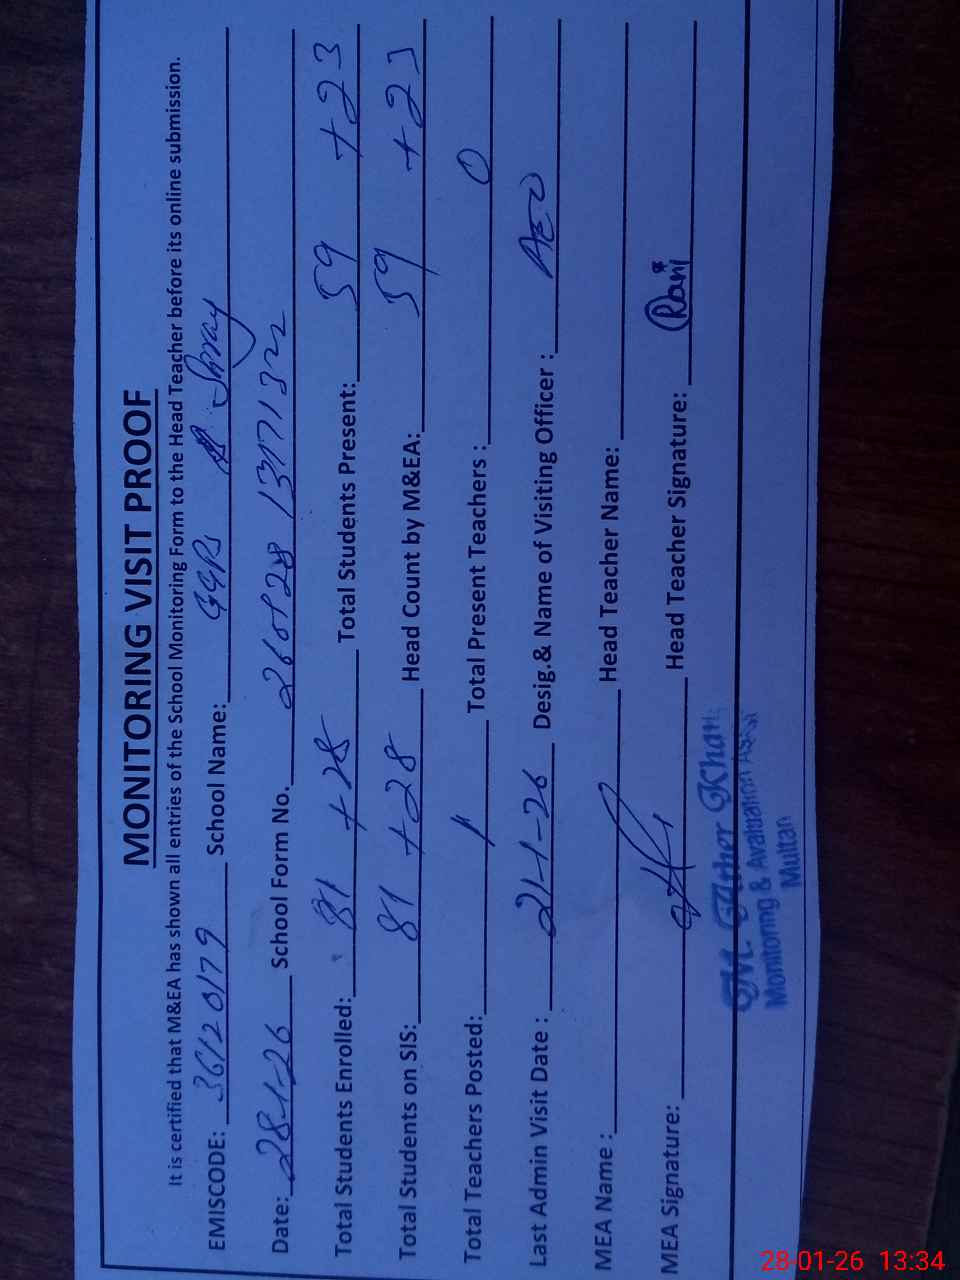 MONITORING VISIT PROOF
It is certified that M&EA has shown all entries of the School Monitoring Form to the Head Teacher before its online submission.
EMISCODE: 36120179 School Name: GGPS
Date: 28-1-26 School Form No.
Total Students Enrolled: 81 + 28 Total Students Present: 59 + 23
Total Students on SIS: 81 + 28 Head Count by M&EA: 59 + 23
Total Teachers Posted: 1 Total Present Teachers : 0
Last Admin Visit Date : 21-1-26 Desig.& Name of Visiting Officer : AEO
MEA Name : Head Teacher Name:
MEA Signature: Head Teacher Signature: Rani
M. Ather Khan
Monitoring & Evaluation
Multan
28-01-26 13:34